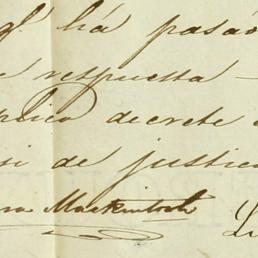 q.e há pasado
respuesta
decrete
si de justicia
Mackintosh